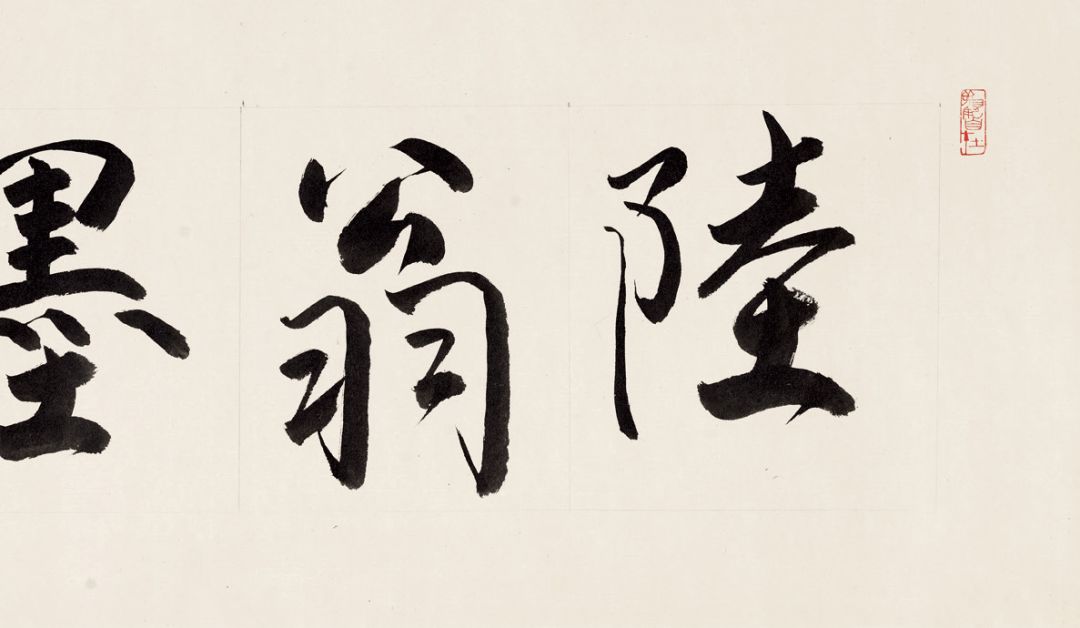 陸翁墨